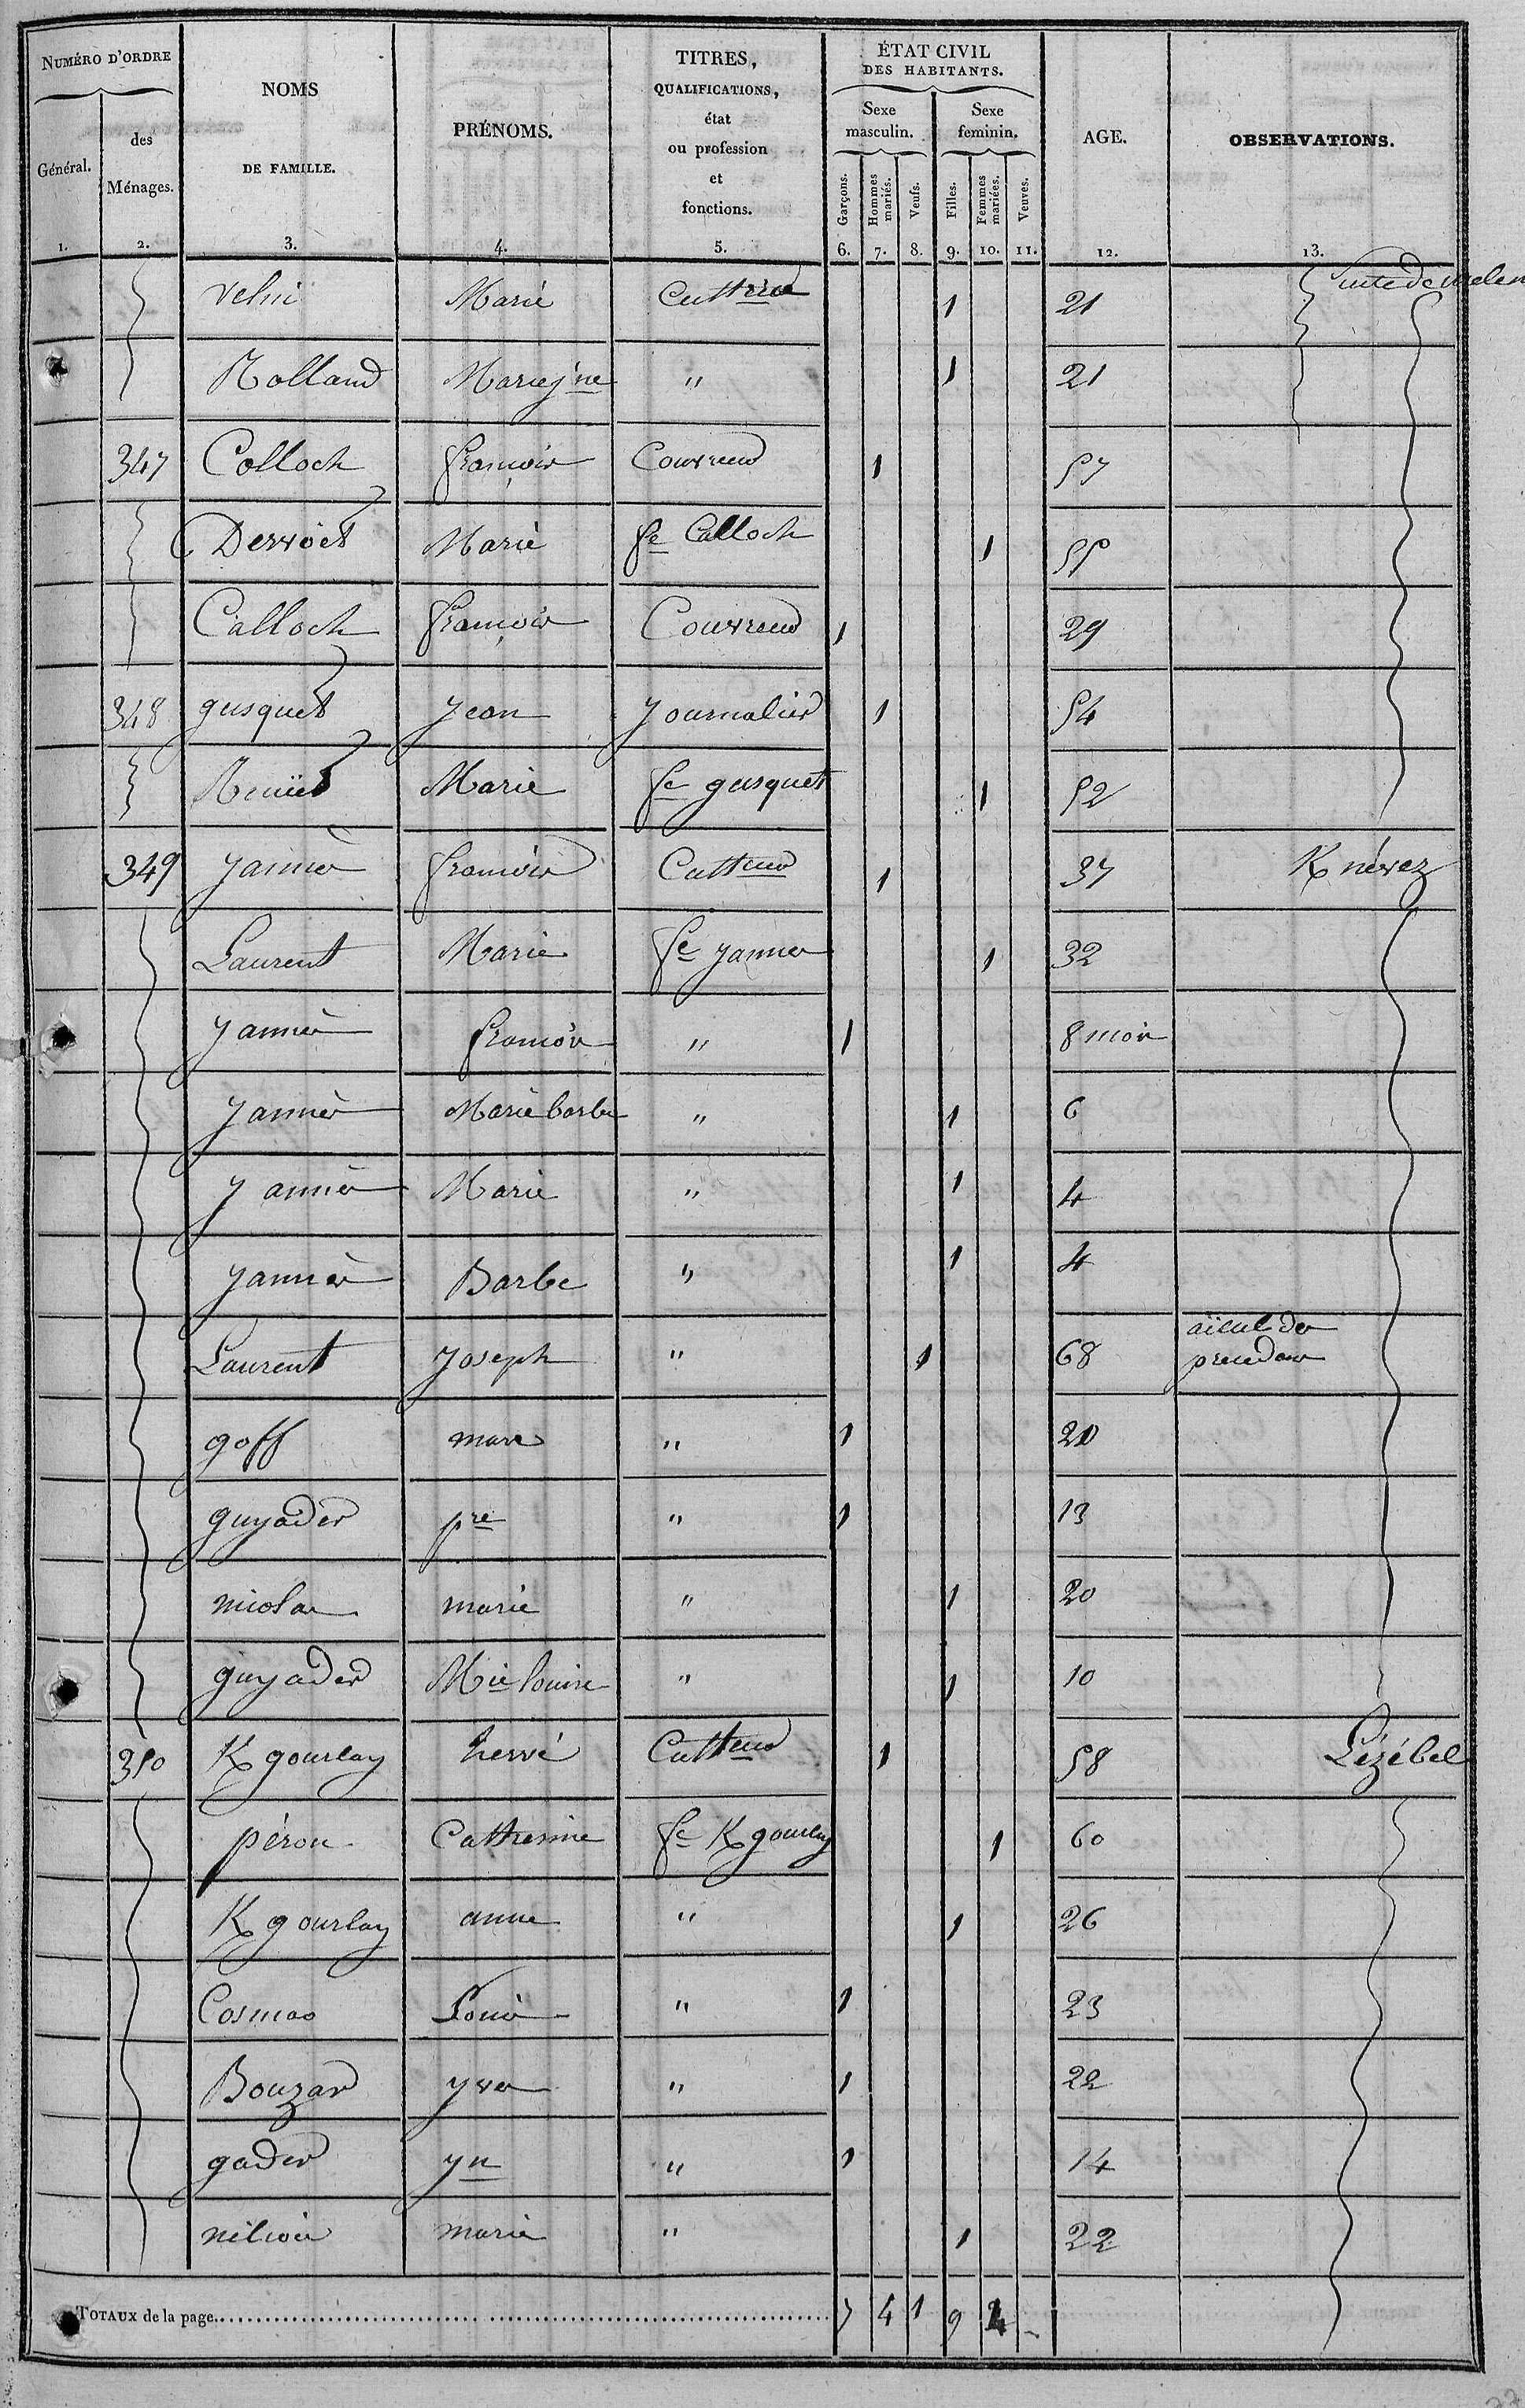 NUMÉRO D'ORDRE
Général.
des Ménages.
NOMS
DE FAMILLE.
PRÉNOMS.
TITRES,
QUALIFICATIONS,
état
ou profession
et
fonctions.
ÉTAT CIVIL
DES HABITANTS.
Sexe masculin.
Sexe feminin.
Garçons. Hommes mariés. Veufs. Filles. Femmes mariées. Veuves.
AGE.
OBSERVATIONS.
1. 2. 3. 4. 5. 6. 7. 8. 9. 10. 11. 12. 13.
Marie 1 21 Suite de
Rolland Marie jne " 1 21
347 Colloch françois Couvreur 1 57
Derroet Marie fe Calloch 1 55
Calloch françois Couvreur 1 29
348 gusquet Jean Journalier 1 54
Marie fe gusquet 1 52
349 yannès françois Cultteur 1 37 K névez
Laurent Marie fe yannès 1 32
yannès françois " 1 8 mois
yannès Marie barbe " 1 6
yannès Marie " 1 4
yannès Barbe " 1 4
Laurent Joseph " 1 68 aïeul des precedans
goff marc " 1 20
guyader pre " 1 13
nicolas marie " 1 20
guyader Mie louise " 1 10
350 K gourlay hervé Cultteur 1 58 Lézébel
péron Catherine fe K gourlay 1 60
K gourlay anne " 1 26
Cosmao Louis " 1 23
Bouzar yves " 1 22
gader yn " 1 14
marie " 1 22
TOTAUX de la page 7 4 1 9 4 -